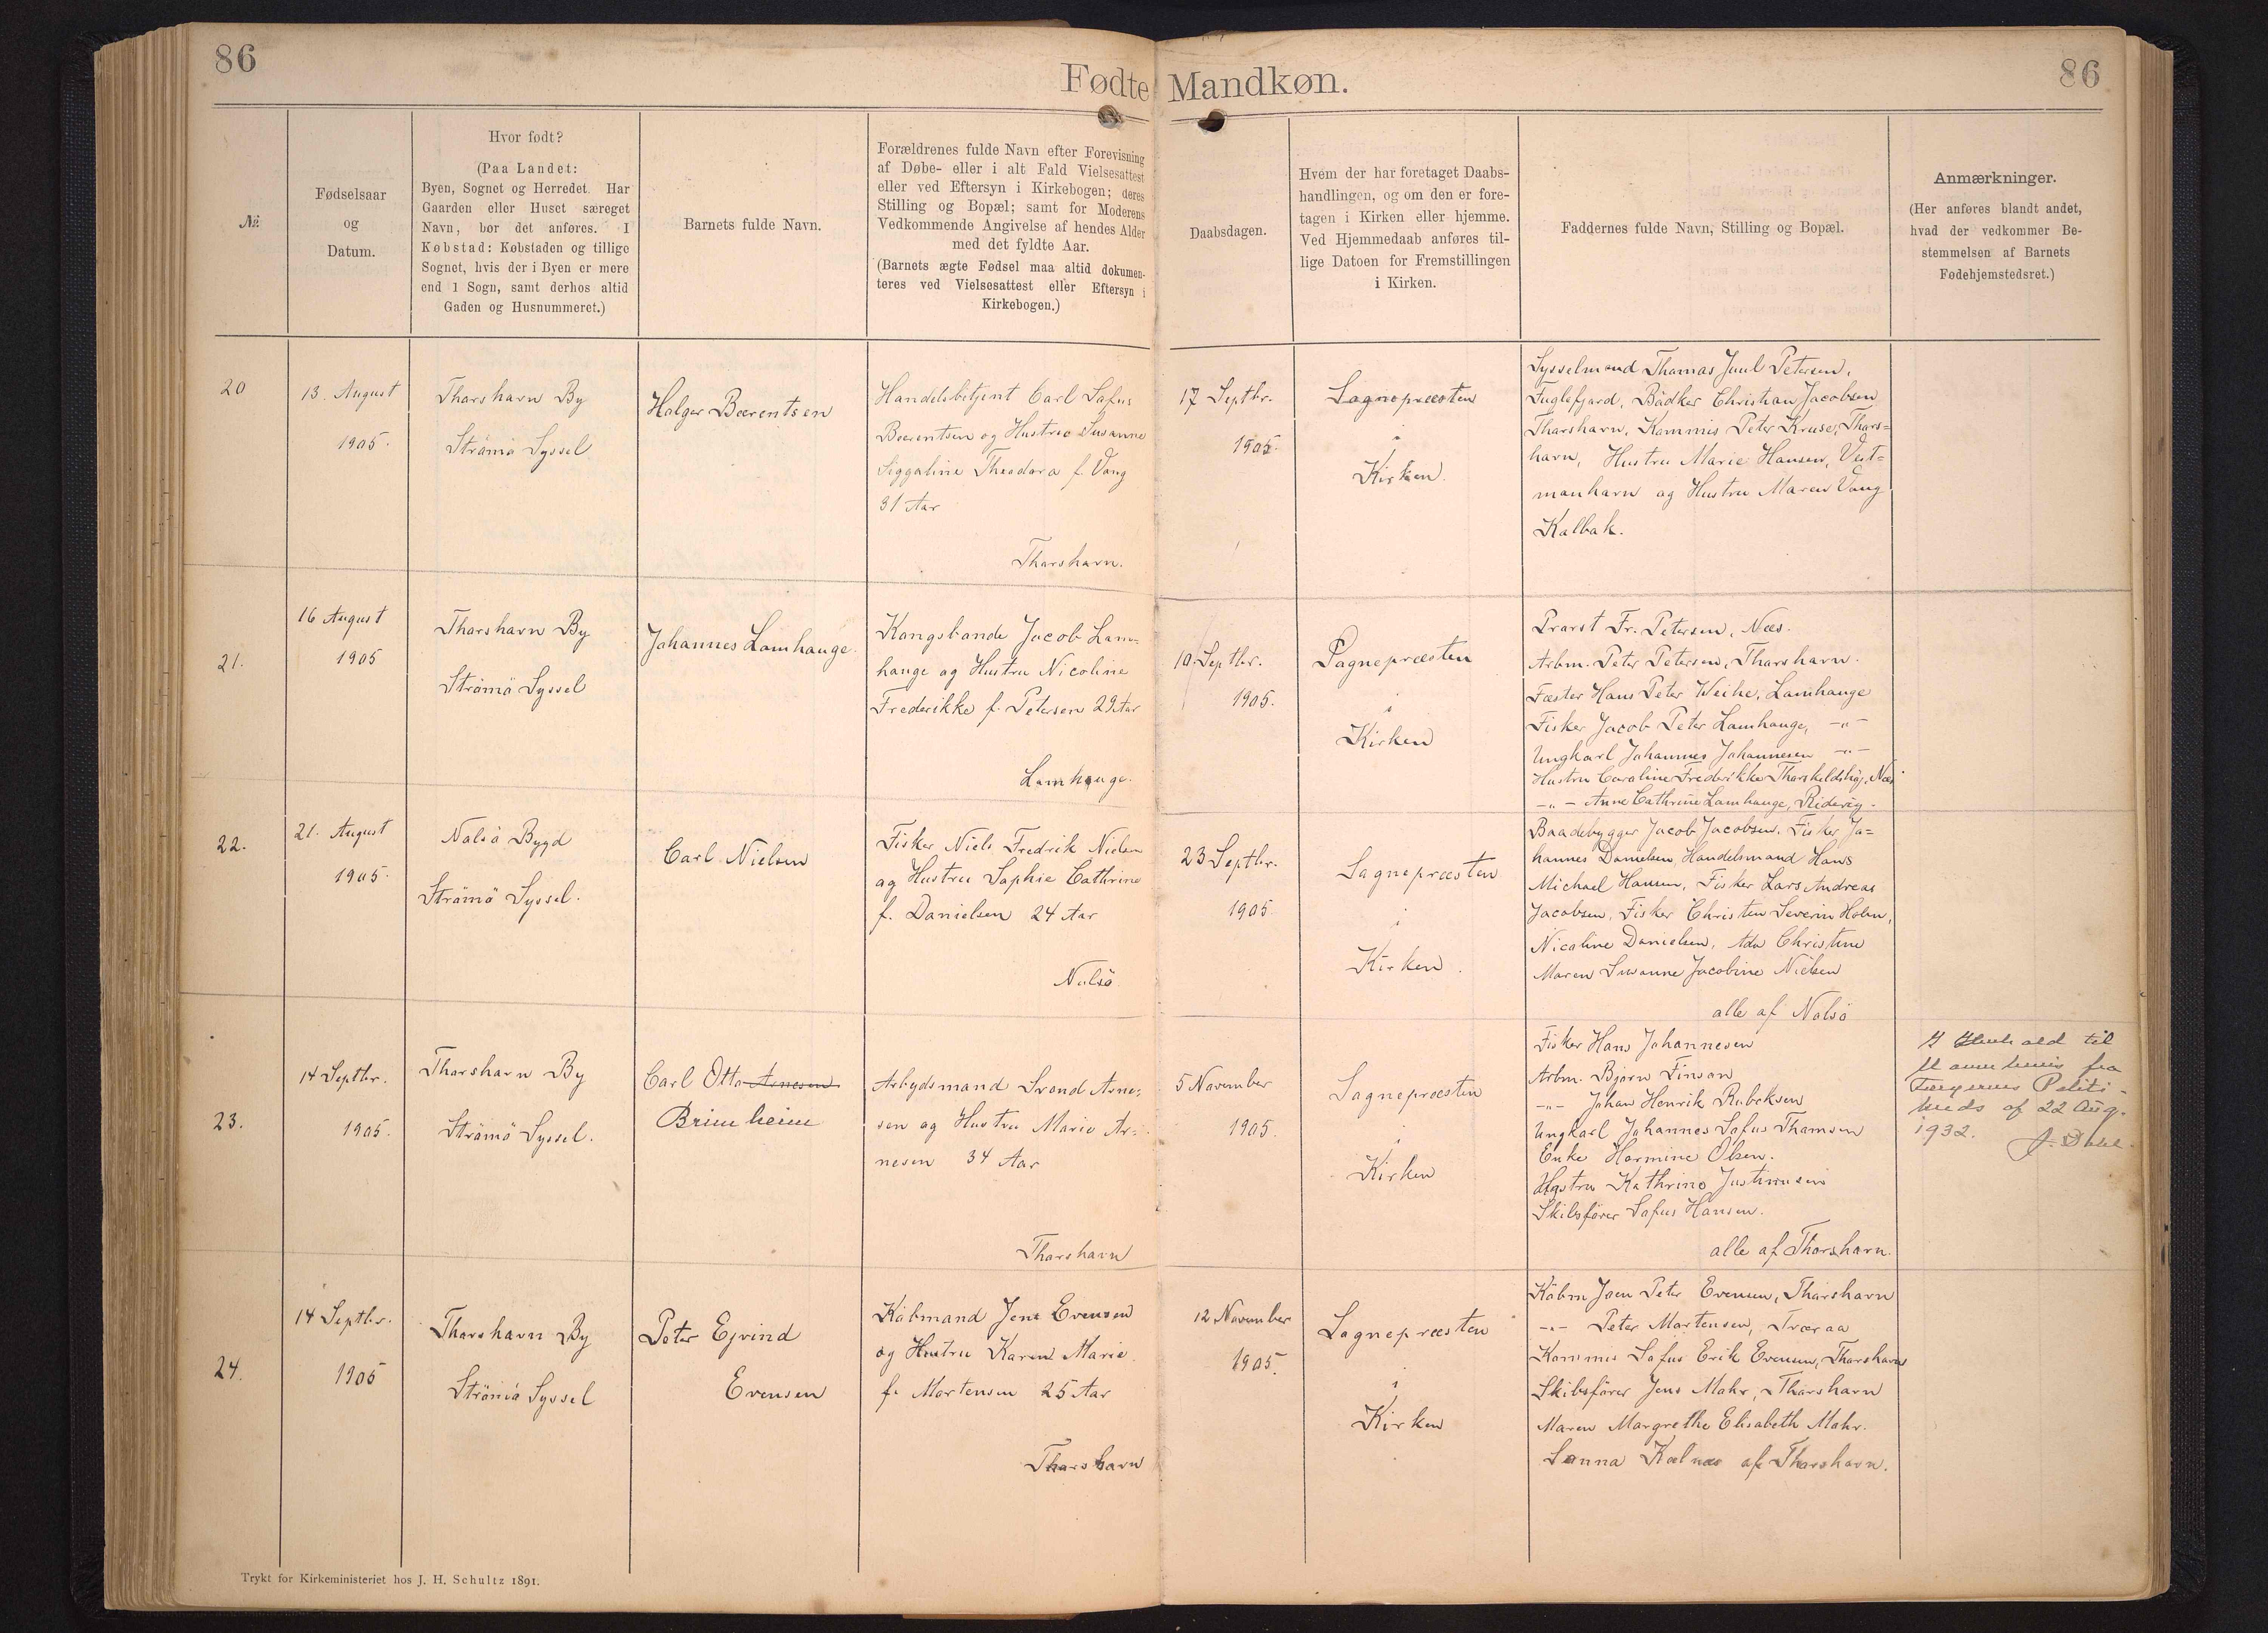 86
Fødte Mandkøn.
86
№
Fødselsaar
og
Datum.
Hvor født?
(Paa Landet:
Byen, Sognet og Herredet. Har
Gaarden eller Huset særeget
Navn, bør det anføres. I
Købstad: Købstaden og tillige
Sognet, hvis der i Byen er mere
end 1 Sogn, samt derhos altid
Gaden og Husnummeret.)
Barnets fulde Navn.
Forældrenes fulde Navn efter Forevisning
af Døbe- eller i alt Fald Vielsesattest
eller ved Eftersyn i Kirkebogen; deres
Stilling og Bopæl; samt for Moderens
Vedkommende Angivelse af hendes Alder
med det fyldte Aar.
(Barnets ægte Fødsel maa altid dokumen-
teres ved Vielsesattest eller Eftersyn i
Kirkebogen.)
Daabsdagen.
Hvem der har foretaget Daabs-
handlingen, og om den er fore-
tagen i Kirken eller hjemme.
Ved Hjemmedaab anføres til-
lige Datoen for Fremstillingen
i Kirken.
Faddernes fulde Navn, Stilling og Bopæl.
Anmærkninger.
(Her anføres blandt andet,
hvad der vedkommer Be-
stemmelsen af Barnets
Fødehjemstedsret.)
20
13. August
1905.
Thorshavn By
Strömö Syssel
Holger Bærentsen
Handelsbetjent Carl Sofus
Bærentsen og Hustru Susanne
Siggaline Theodora f. Vang
31 Aar
Thorshavn.
17 Septbr.
1905.
Sognepræsten
i
Kirken.
Sysselmand Thomas Juul Petersen,
Fuglefjord, Bödker Christian Jacobsen
Thorshavn, Kommis Peter Kruse, Thors=
havn, Hustru Marie Hansen, Vest=
manhavn og Hustru Maren Vang
Kalbak.
21.
16 August
1905
Thorshavn By
Strömö Syssel
Johannes Lamhauge.
Kongsbonde Jacob Lam=
hauge og Hustru Nicoline
Frederikke f. Petersen 29 Aar
Lamhauge.
10. Septbr.
1905.
Sognepræsten
i
Kirken
Provst Fr. Petersen, Næs.
Arbm. Peter Petersen, Thorshavn.
Fæster Hans Peter Weihe, Lamhauge
Fisker Jacob Peter Lamhauge, -"-
Ungkarl Johannes Johannesen -"-
Hustru Caroline Frederikke Thorkeldshøj, Næs
-"- Anne Cathrine Lamhauge, Ridevig.
22.
21. August
1905.
Nolsö Bygd
Strömö Syssel.
Carl Nielsen
Fisker Niels Fredrik Nielsen
og Hustru Sophie Cathrine
f. Danielsen 24 Aar
Nolsö
23 Septbr.
1905
Sognepræsten
i
Kirken.
Baadebygger Jacob Jacobsen, Fisker Jo=
hannes Danielsen, Handelsmand Hans
Michael Hansen, Fisker Lars Andreas
Jacobsen, Fisker Christen Severin Holm,
Nicoline Danielsen, Ada Christine
Maren Susanne Jacobine Nielsen
alle af Nolsö
23.
14 Septbr.
1905.
Thorshavn By
Strömö Syssel.
Carl Otto Arnesen
Brimheim
Arbejdsmand Trond Arne=
sen og Hustru Marie Ar=
nesen 34 Aar
Thorshavn
5 November
1905.
Sognepræsten
i
Kirken
Fisker Hans Johannesen
Arbm. Bjørn Finson
-"- Johan Henrik Rubeksen
Ungkarl Johannes Sofus Thomsen
Enke Hermine Olsen.
Hustru Kathrine Justinusen
Skibsfører Sofus Hansen.
alle af Thorshavn.
I Henhold til
fra
Færøernes Politi-
af 22 Aug.
1932. J. Dahl.
24.
14 Septbr.
1905
Thorshavn By
Strömö Syssel
Peter Ejvind
Evensen
Købmand Jens Evensen
og Hustru Karen Marie
f. Mortensen 25 Aar
Thorshavn
12 November
1905.
Sognepræsten
i
Kirken
Købm Joen Peter Evensen, Thorshavn
-"- Peter Mortensen, Tværaa
Kommis Sofus Erik Evensen, Thorshavn
Skibsfører Jens Mohr, Thorshavn
Maren Margrethe Elisabeth Mohr.
Sanna Kalnæs af Thorshavn.
Trykt for Kirkeministeriet hos J. H. Schultz 1891.